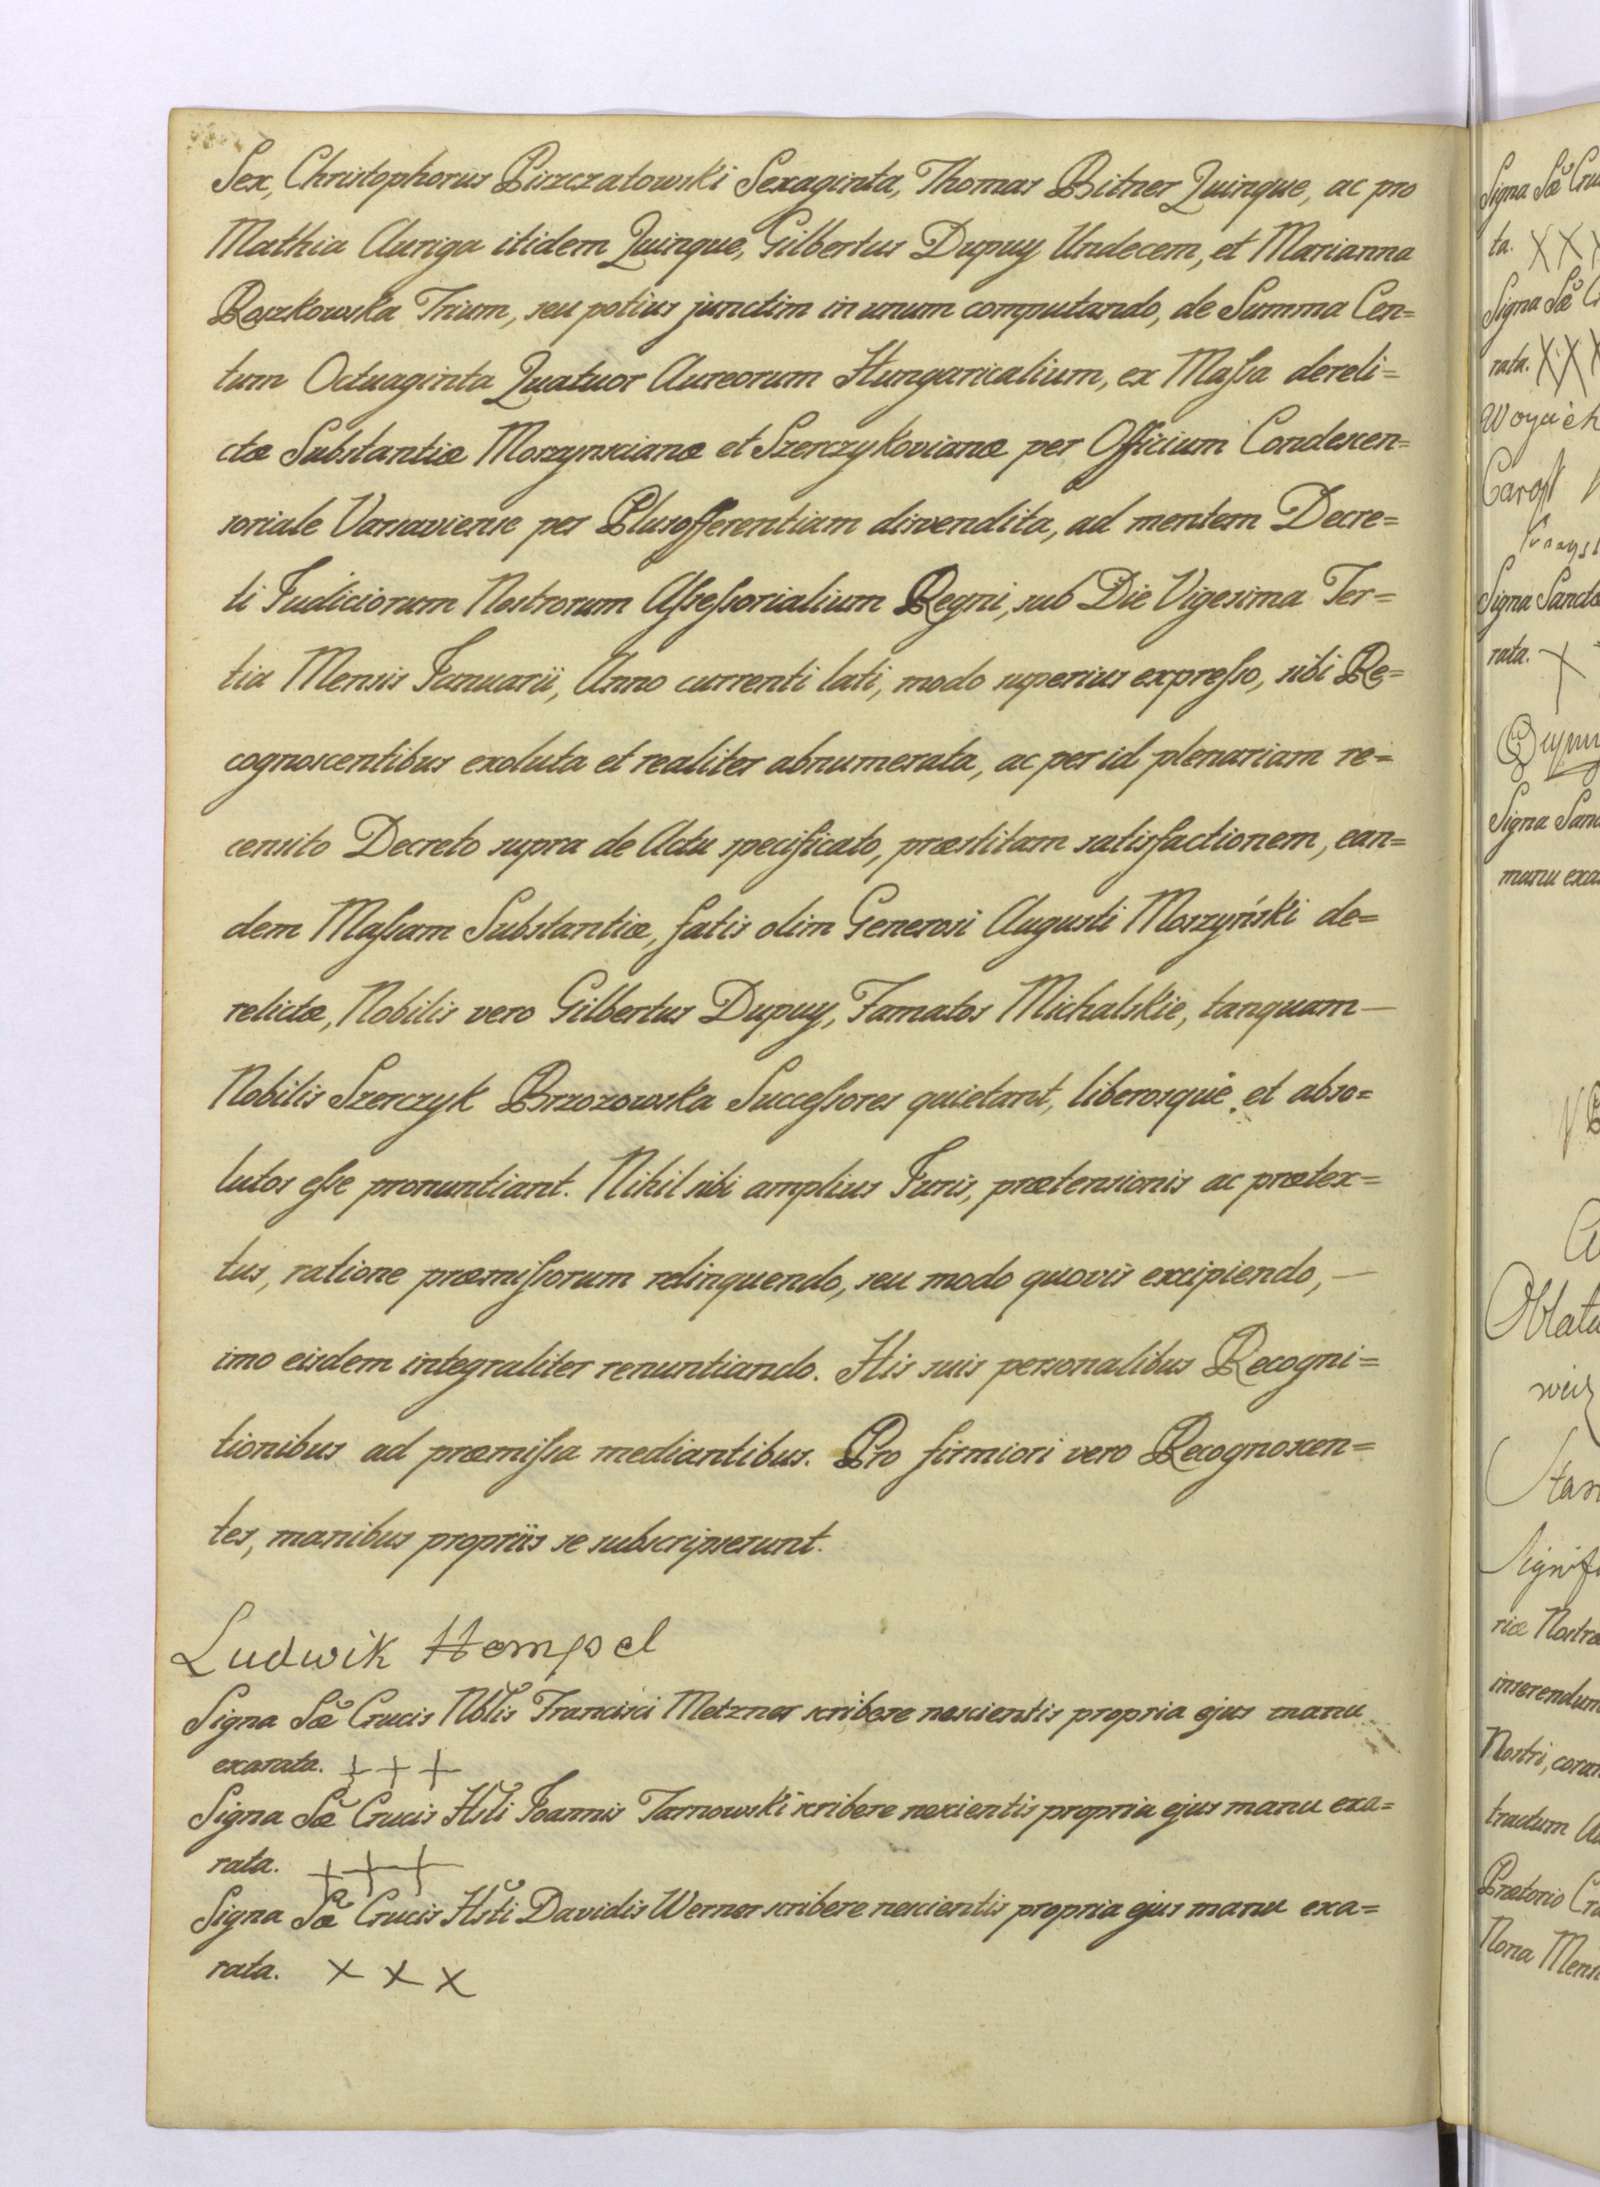 Sex, Christophorus Piszczatowski Sexaginta, Thomas Bitner Quinque, ac pro
Mathia Auriga itidem Quinque, Gilbertus Dupuy Undecem, et Marianna
Roszkowska Trium, seu potius junctim in unum computando, de Summa Cen=
tum Octuaginta Quatuor Aureorum Hungaricalium, ex Maſsa dereli=
ctæ Substantiæ Moszynscianæ et Szerczykovianæ per Officium Condescen=
soriale Varsaviense per Plusofferentiam divendita, ad mentem Decre=
ti Judiciorum Nostrorum Aſseſsorialium Regni, sub Die Vigesima Ter=
tia Mensis Januarii, Anno currenti lati, modo superius expreſso, sibi Re=
cognoscentibus exoluta et realiter abnumerata, ac per id plenariam re=
censito Decreto supra de Actu specificato, præstitam satisfactionem, ean=
dem Maſsam Substantiæ, fatis olim Generosi Augusti Moszyński de=
relictæ, Nobilis vero Gilbertus Dupuy, Famatos Michalskie, tanquam —
Nobilis Szerczyk Brzozowska Succeſsores quietant, liberosque et abso=
lutos eſse pronuntiant. Nihil sibi amplius Juris, prætensionis ac prætex=
tus, ratione præmiſsorum relinquendo, seu modo quovis excipiendo, —
imo eisdem integraliter renuntiando. His suis personalibus Recogni=
tionibus ad præmiſsa mediantibus. Pro firmiori vero Recognoscen=
tes, manibus propriis se subscripserunt.
Ludwik Hempel
Signa Sæ Crucis Nblis Francisci Metzner scribere nescientis propria ejus manu
exarata. + + +
Signa Sæ Crucis Hsti Joannis Tarnowski scribere nescientis propria ejus manu exa=
rata. + + +
Signa Sæ Crucis Hsti Davidis Werner scribere nescientis propria ejus manu exa=
rata. x x x
Signa Sæ
ta. X X X
Signa Sæ
rata. X X X
Signa
rata. X
Signa
manu
riæ
Nostri,
Nona